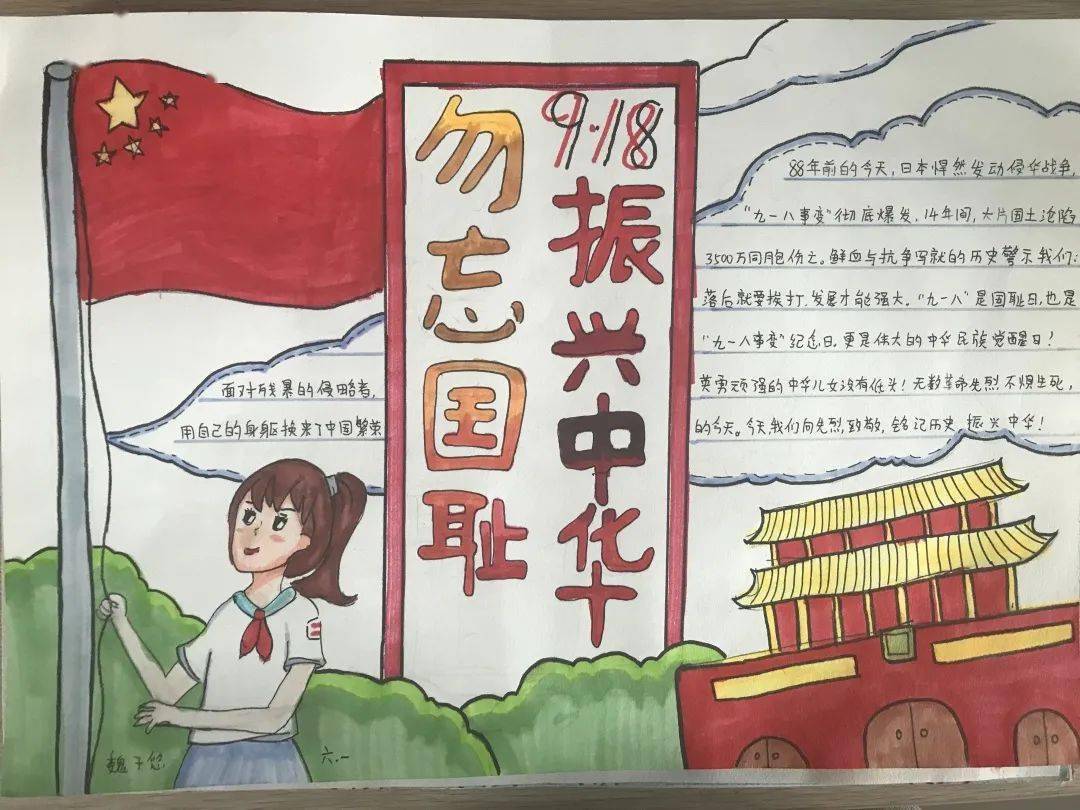 9·18
勿忘国耻
振兴中华
88年前的今天,日本悍然发动侵华战争,
"九一八事变"彻底爆发.14年间,大片国土沦陷
3500万同胞伤亡。鲜血与抗争写就的历史警示我们:
落后就要挨打,发展才能强大。"九一八"是国耻日,也是
"九一八事变"纪念日,更是伟大的中华民族觉醒日!
面对残暴的侵略者,
英勇顽强的中华儿女没有低头!无数革命先烈不惧生死,
用自己的身躯换来了中国繁荣
的今天。今天,我们向先烈致敬,铭记历史,振兴中华!
魏千悠
六.一